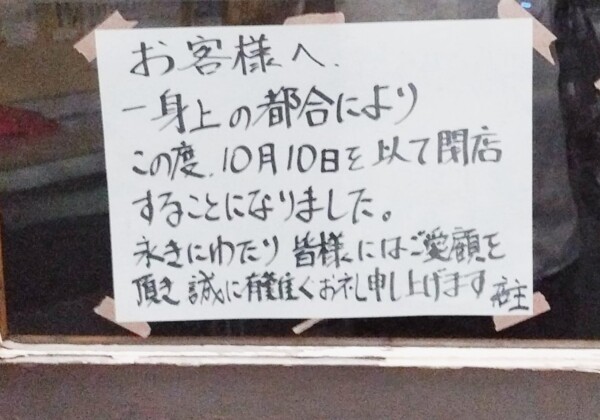 お客様へ.
一身上の都合により
この度、10月10日を以て閉店
することになりました。
永きにわたり 皆様にはご愛顧を
頂き 誠に有難くお礼申し上げます 店主